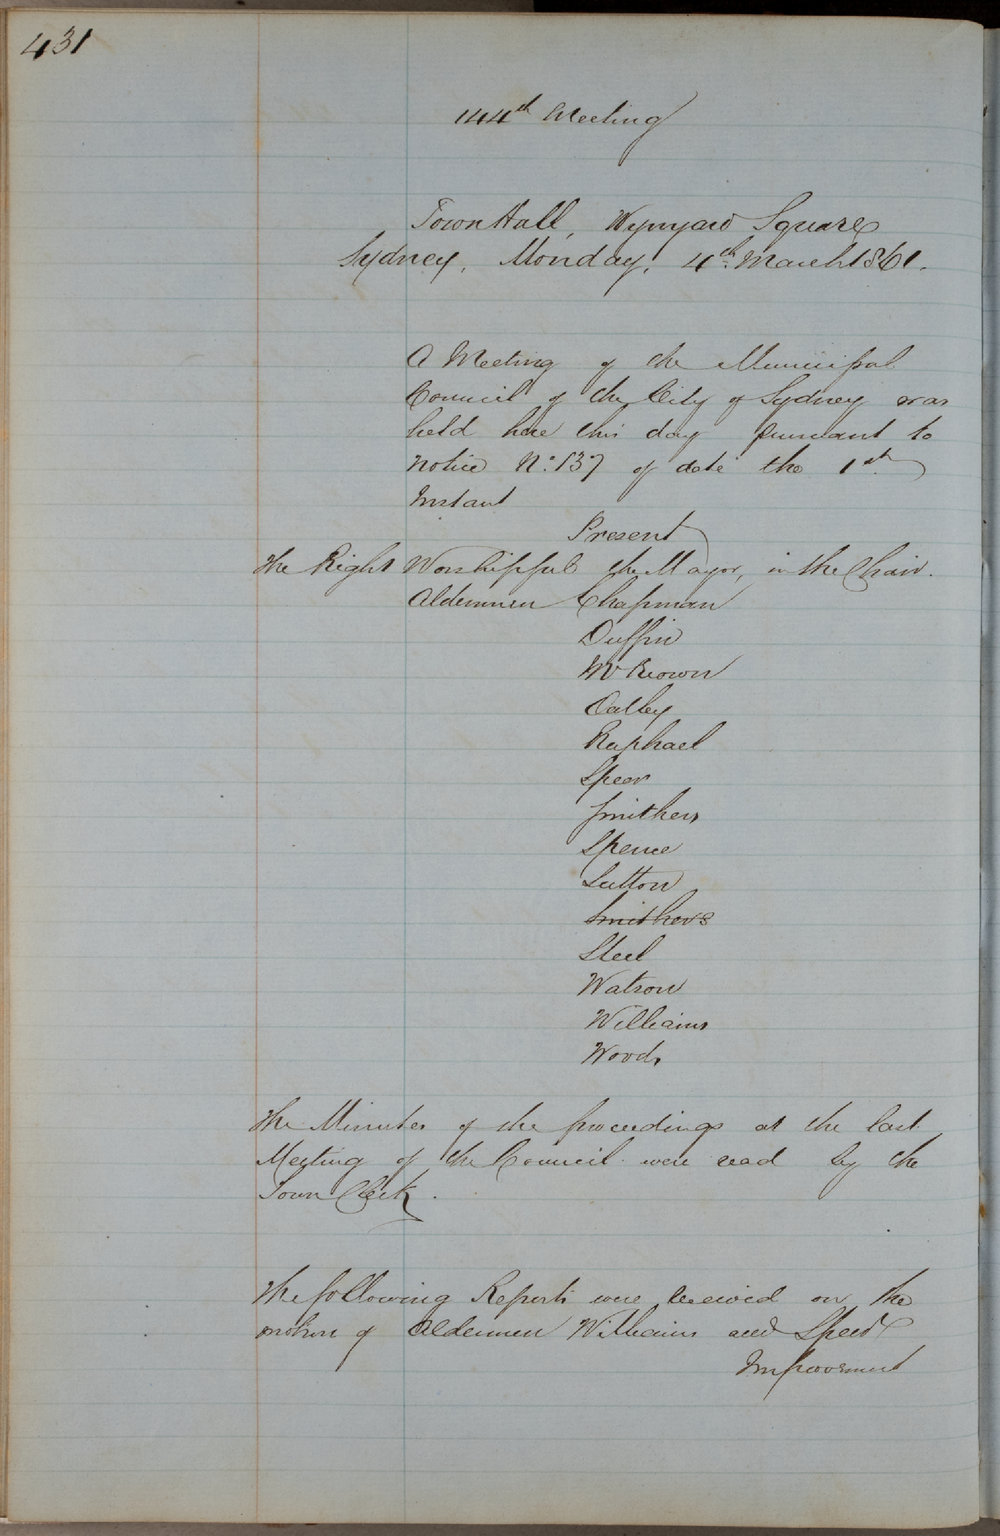 431
144th Meeting
Town Hall, Wynyard Square
Sydney, Monday, 4th March 1861.
A Meeting of the Municipal
Council of the City of Sydney was
held here this day pursuant to
notice No. 137 of date the 1st
Instant
Present
The Right Worshipful the Mayor, in the Chair.
Aldermen Chapman
Duffin
Oatley
Raphael
Speer
Smithers
Spence
Sutton
Smithers
Steel
Watson
Williams
Woods
The Minutes of the proceedings at the last
Meeting of the Council were read by the
Town Clerk.
The following Reports were received on the
motion of Aldermen Williams and Speer
Improvement